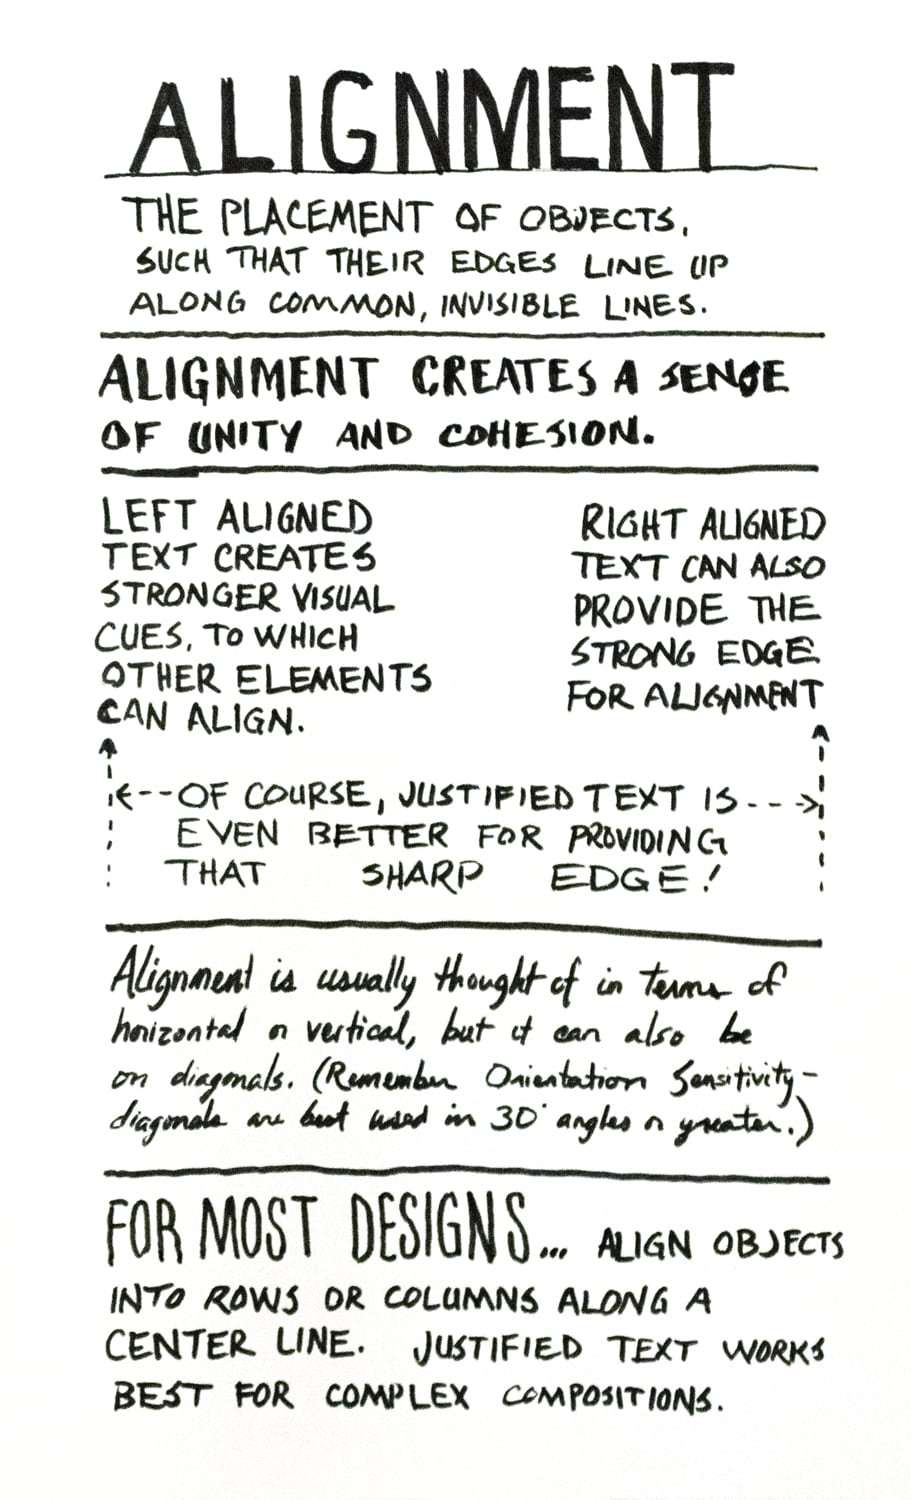 ALIGNMENT
THE PLACEMENT OF OBJECTS,
SUCH THAT THEIR EDGES LINE UP
ALONG COMMON, INVISIBLE LINES.
ALIGNMENT CREATES A SENSE
OF UNITY AND COHESION.
LEFT ALIGNED
TEXT CREATES
STRONGER VISUAL
CUES, TO WHICH
OTHER ELEMENTS
CAN ALIGN.
RIGHT ALIGNED
TEXT CAN ALSO
PROVIDE THE
STRONG EDGE
FOR ALIGNMENT
OF COURSE, JUSTIFIED TEXT IS
EVEN BETTER FOR PROVIDING
THAT SHARP EDGE!
Alignment is usually thought of in terms of
horizontal or vertical, but it can also be
on diagonals. (Remember Orientation Sensitivity-
diagonals are best used in 30° angles or greater.)
FOR MOST DESIGNS... ALIGN OBJECTS
INTO ROWS OR COLUMNS ALONG A
CENTER LINE. JUSTIFIED TEXT WORKS
BEST FOR COMPLEX COMPOSITIONS.